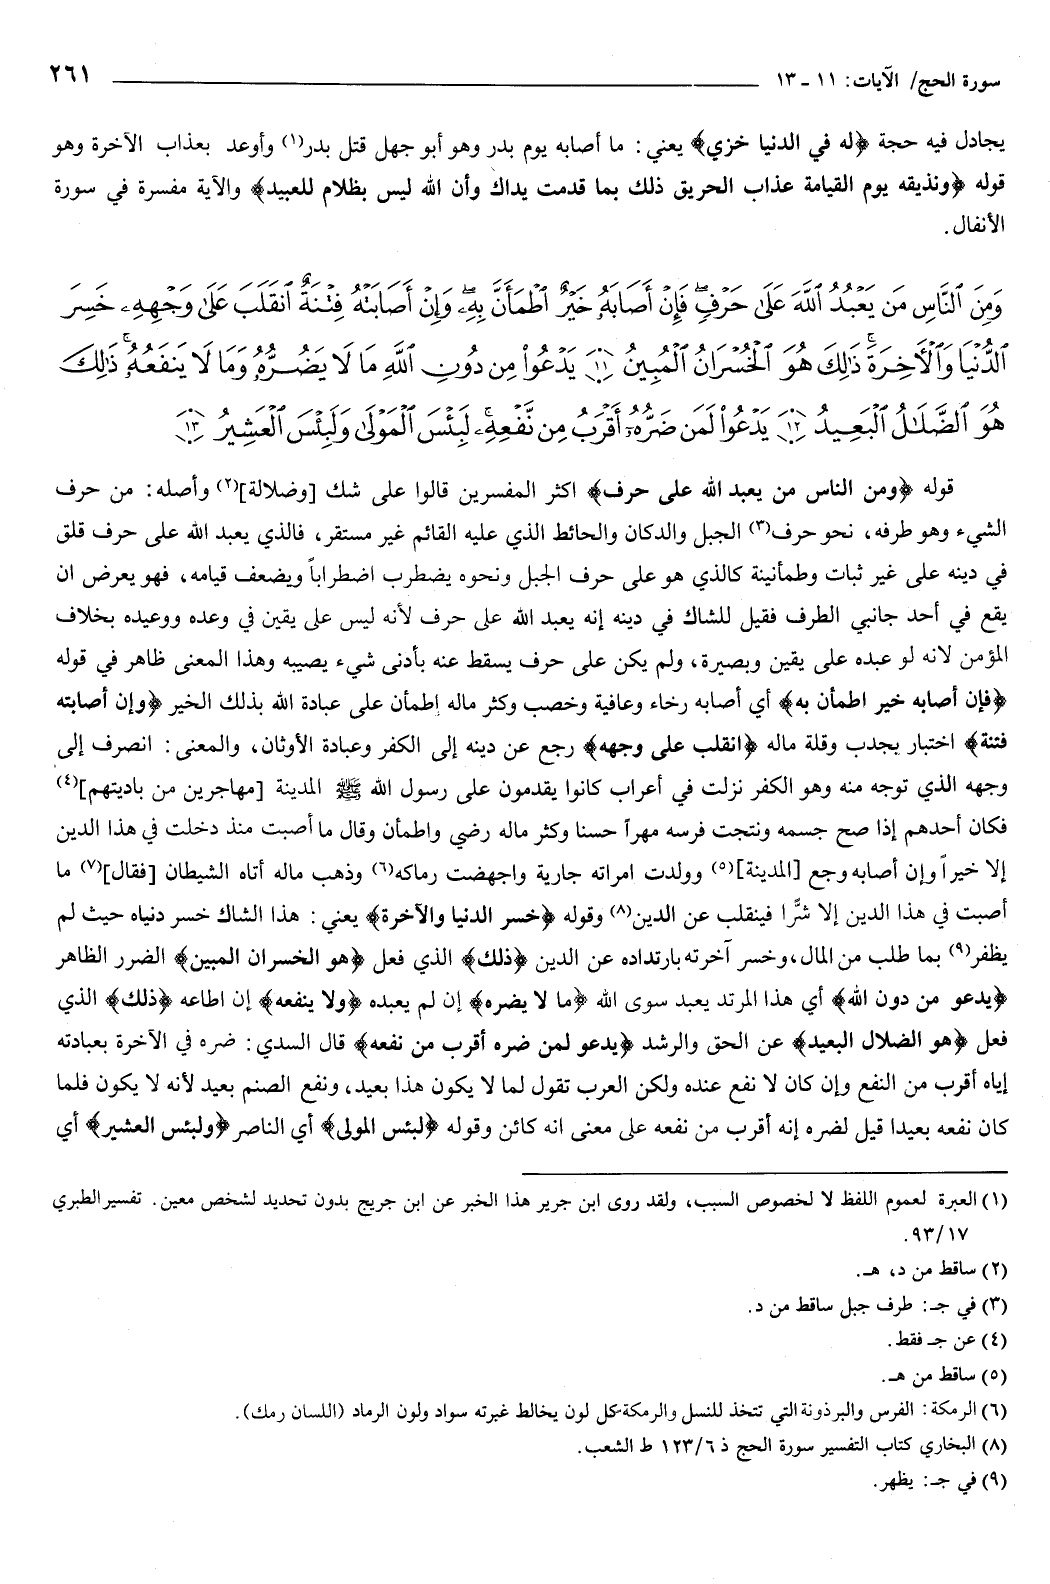 سورة الحج/ الآيات: ١١ ـ ١٣ ٢٦١
يجادل فيه حجة ﴿له في الدنيا خزي﴾ يعني: ما أصابه يوم بدر وهو أبو جهل قتل بدر(١) وأوعد بعذاب الآخرة وهو
قوله ﴿ونذيقه يوم القيامة عذاب الحريق ذلك بما قدمت يداك وأن الله ليس بظلام للعبيد﴾ والآية مفسرة في سورة
الأنفال.
وَمِنَ ٱلنَّاسِ مَن يَعْبُدُ ٱللَّهَ عَلَىٰ حَرْفٍۖ فَإِنْ أَصَابَهُۥ خَيْرٌ ٱطْمَأَنَّ بِهِۦۖ وَإِنْ أَصَابَتْهُ فِتْنَةٌ ٱنقَلَبَ عَلَىٰ وَجْهِهِۦ خَسِرَ
ٱلدُّنْيَا وَٱلْأٓخِرَةَۚ ذَٰلِكَ هُوَ ٱلْخُسْرَانُ ٱلْمُبِينُ ﴿١١﴾ يَدْعُوا۟ مِن دُونِ ٱللَّهِ مَا لَا يَضُرُّهُۥ وَمَا لَا يَنفَعُهُۥۚ ذَٰلِكَ
هُوَ ٱلضَّلَٰلُ ٱلْبَعِيدُ ﴿١٢﴾ يَدْعُوا۟ لَمَن ضَرُّهُۥٓ أَقْرَبُ مِن نَّفْعِهِۦۚ لَبِئْسَ ٱلْمَوْلَىٰ وَلَبِئْسَ ٱلْعَشِيرُ ﴿١٣﴾
قوله ﴿ومن الناس من يعبد الله على حرف﴾ اكثر المفسرين قالوا على شك [وضلالة](٢) وأصله: من حرف
الشيء وهو طرفه، نحو حرف(٣) الجبل والدكان والحائط الذي عليه القائم غير مستقر، فالذي يعبد الله على حرف قلق
في دينه على غير ثبات وطمأنينة كالذي هو على حرف الجبل ونحوه يضطرب اضطراباً ويضعف قيامه، فهو يعرض ان
يقع في أحد جانبي الطرف فقيل للشاك في دينه إنه يعبد الله على حرف لأنه ليس على يقين في وعده ووعيده بخلاف
المؤمن لانه لو عبده على يقين وبصيرة، ولم يكن على حرف يسقط عنه بأدنى شيء يصيبه وهذا المعنى ظاهر في قوله
﴿فإن أصابه خير اطمأن به﴾ أي أصابه رخاء وعافية وخصب وكثر ماله إطمأن على عبادة الله بذلك الخير ﴿وإن أصابته
فتنة﴾ اختبار بجدب وقلة ماله ﴿انقلب على وجهه﴾ رجع عن دينه إلى الكفر وعبادة الأوثان، والمعنى: انصرف إلى
وجهه الذي توجه منه وهو الكفر نزلت في أعراب كانوا يقدمون على رسول الله ﷺ المدينة [مهاجرين من باديتهم](٤)
فكان أحدهم إذا صح جسمه ونتجت فرسه مهراً حسنا وكثر ماله رضي واطمأن وقال ما أصبت منذ دخلت في هذا الدين
إلا خيراً وإن أصابه وجع [المدينة](٥) وولدت امراته جارية واجهضت رماكه(٦) وذهب ماله أتاه الشيطان [فقال](٧) ما
أصبت في هذا الدين إلا شرًّا فينقلب عن الدين(٨) وقوله ﴿خسر الدنيا والآخرة﴾ يعني: هذا الشاك خسر دنياه حيث لم
يظفر(٩) بما طلب من المال، وخسر آخرته بارتداده عن الدين ﴿ذلك﴾ الذي فعل ﴿هو الخسران المبين﴾ الضرر الظاهر
﴿يدعو من دون الله﴾ أي هذا المرتد يعبد سوى الله ﴿ما لا يضره﴾ إن لم يعبده ﴿ولا ينفعه﴾ إن اطاعه ﴿ذلك﴾ الذي
فعل ﴿هو الضلال البعيد﴾ عن الحق والرشد ﴿يدعو لمن ضره أقرب من نفعه﴾ قال السدي: ضره في الآخرة بعبادته
إياه أقرب من النفع وإن كان لا نفع عنده ولكن العرب تقول لما لا يكون هذا بعيد، ونفع الصنم بعيد لأنه لا يكون فلما
كان نفعه بعيدا قيل لضره إنه أقرب من نفعه على معنى انه كائن وقوله ﴿لبئس المولى﴾ أي الناصر ﴿ولبئس العشير﴾ أي
(١) العبرة لعموم اللفظ لا لخصوص السبب، ولقد روى ابن جرير هذا الخبر عن ابن جريج بدون تحديد لشخص معين. تفسير الطبري
٩٣/١٧.
(٢) ساقط من د، هـ.
(٣) في جـ: طرف جبل ساقط من د.
(٤) عن جـ فقط.
(٥) ساقط من هـ.
(٦) الرمكة: الفرس والبرذونة التي تتخذ للنسل والرمكة كل لون يخالط غبرته سواد ولون الرماد (اللسان رمك).
(٨) البخاري كتاب التفسير سورة الحج ذ ١٢٣/٦ ط الشعب.
(٩) في جـ: يظهر.